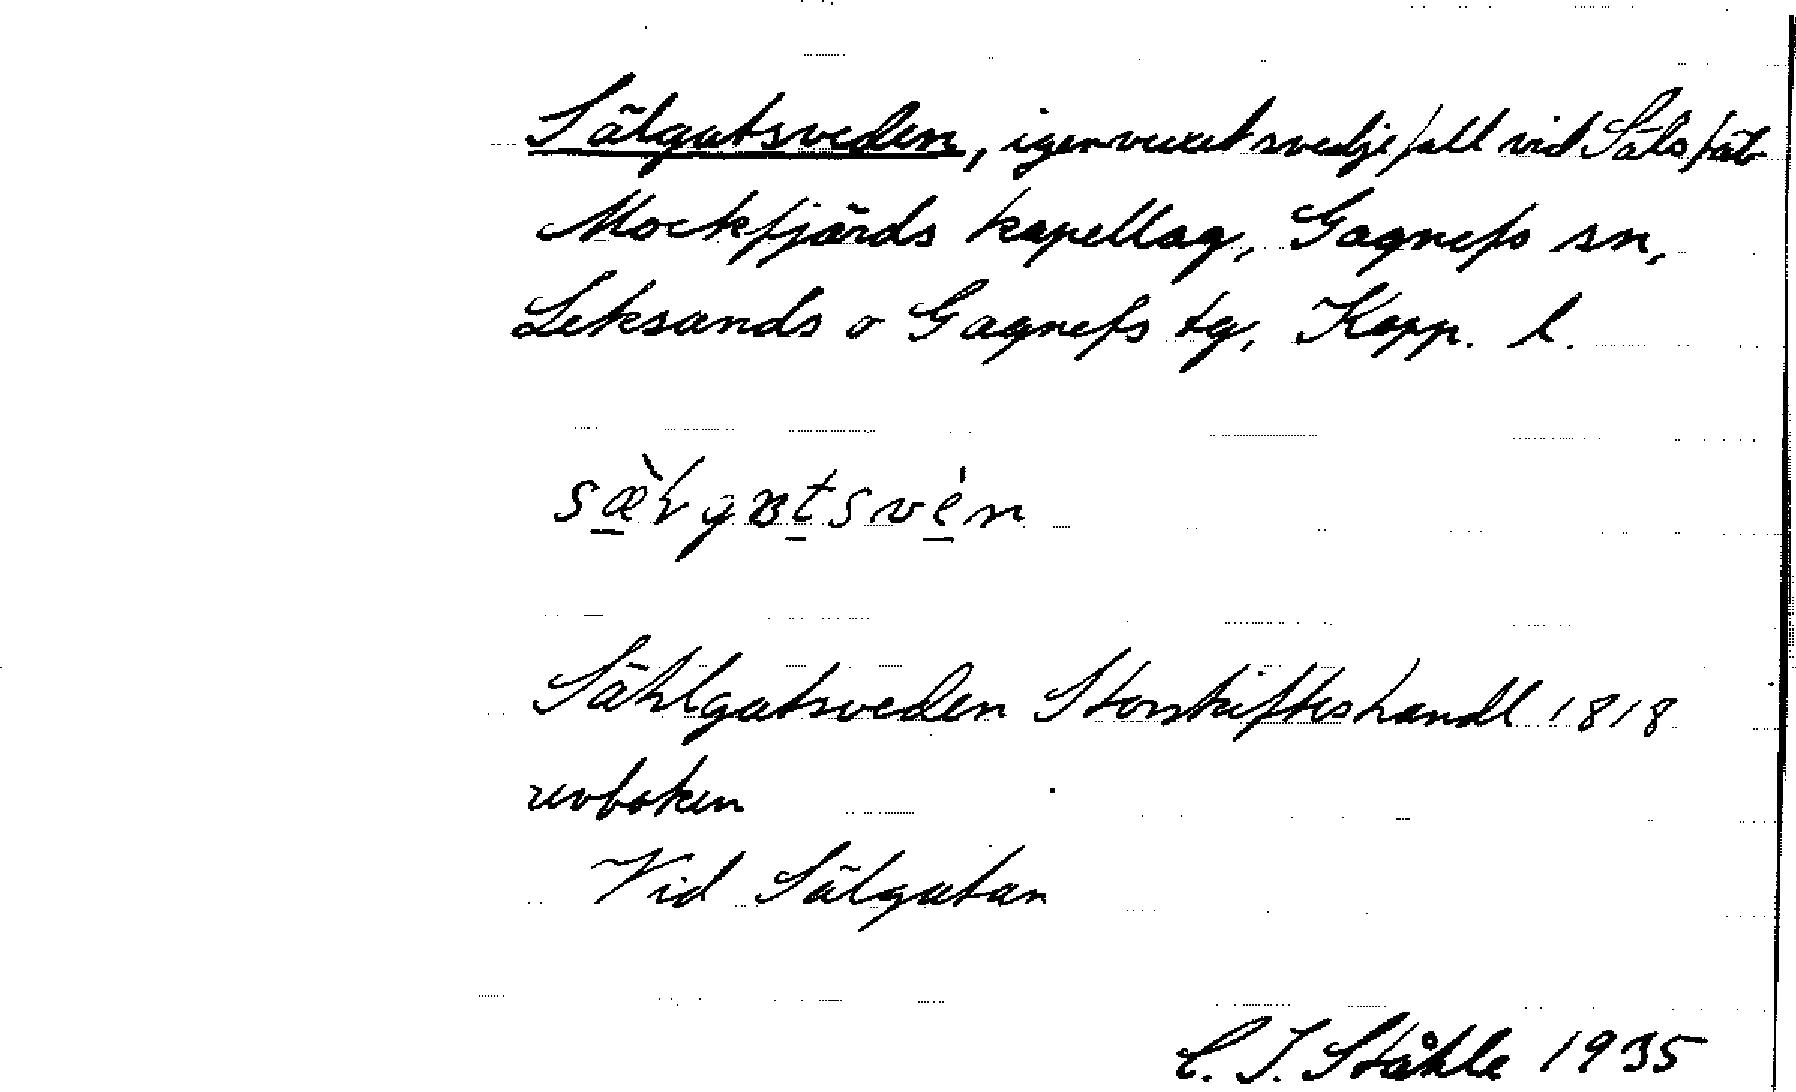 Sälgatsveden, igenvuxet svedjefall vid Säls fäb
Mockfjärds kapellag, Gagnefs sn,
Leksands o Gagnefs tg, Kopp. l.
Sählgatsveden Storskifteshandl 1818
revboken
Vid Sälgatan
C. I. Ståhle 1935